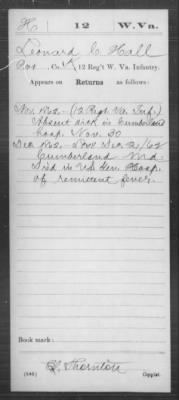 H | 12 | W. Va.
Leonard C. Hall
Co. 12 Reg't W. Va. Infantry.
Appears on
Returns as follows:
Nov. 1862 - (12 Regt. Va. Inf.)
Absent sick in Cumberland
hosp. Nov. 30
Dec. 1862 - Dec. 2/62
Cumberland Md.
Died in U.S. Gen. Hosp.
of remittent fever.
Book mark:
Thornton
(546) Copyist.